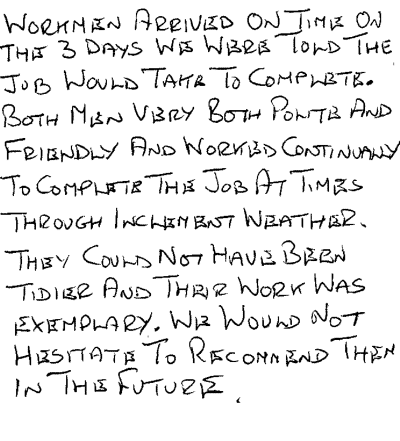 WORKMEN ARRIVED ON TIME ON
THE 3 DAYS WE WERE TOLD THE
JOB WOULD TAKE TO COMPLETE.
BOTH MEN VERY BOTH POLITE AND
FRIENDLY AND WORKED CONTINUALLY
TO COMPLETE THE JOB AT TIMES
THROUGH INCLEMENT WEATHER.
THEY COULD NOT HAVE BEEN
TIDIER AND THEIR WORK WAS
EXEMPLARY. WE WOULD NOT
HESITATE TO RECOMMEND THEM
IN THE FUTURE.